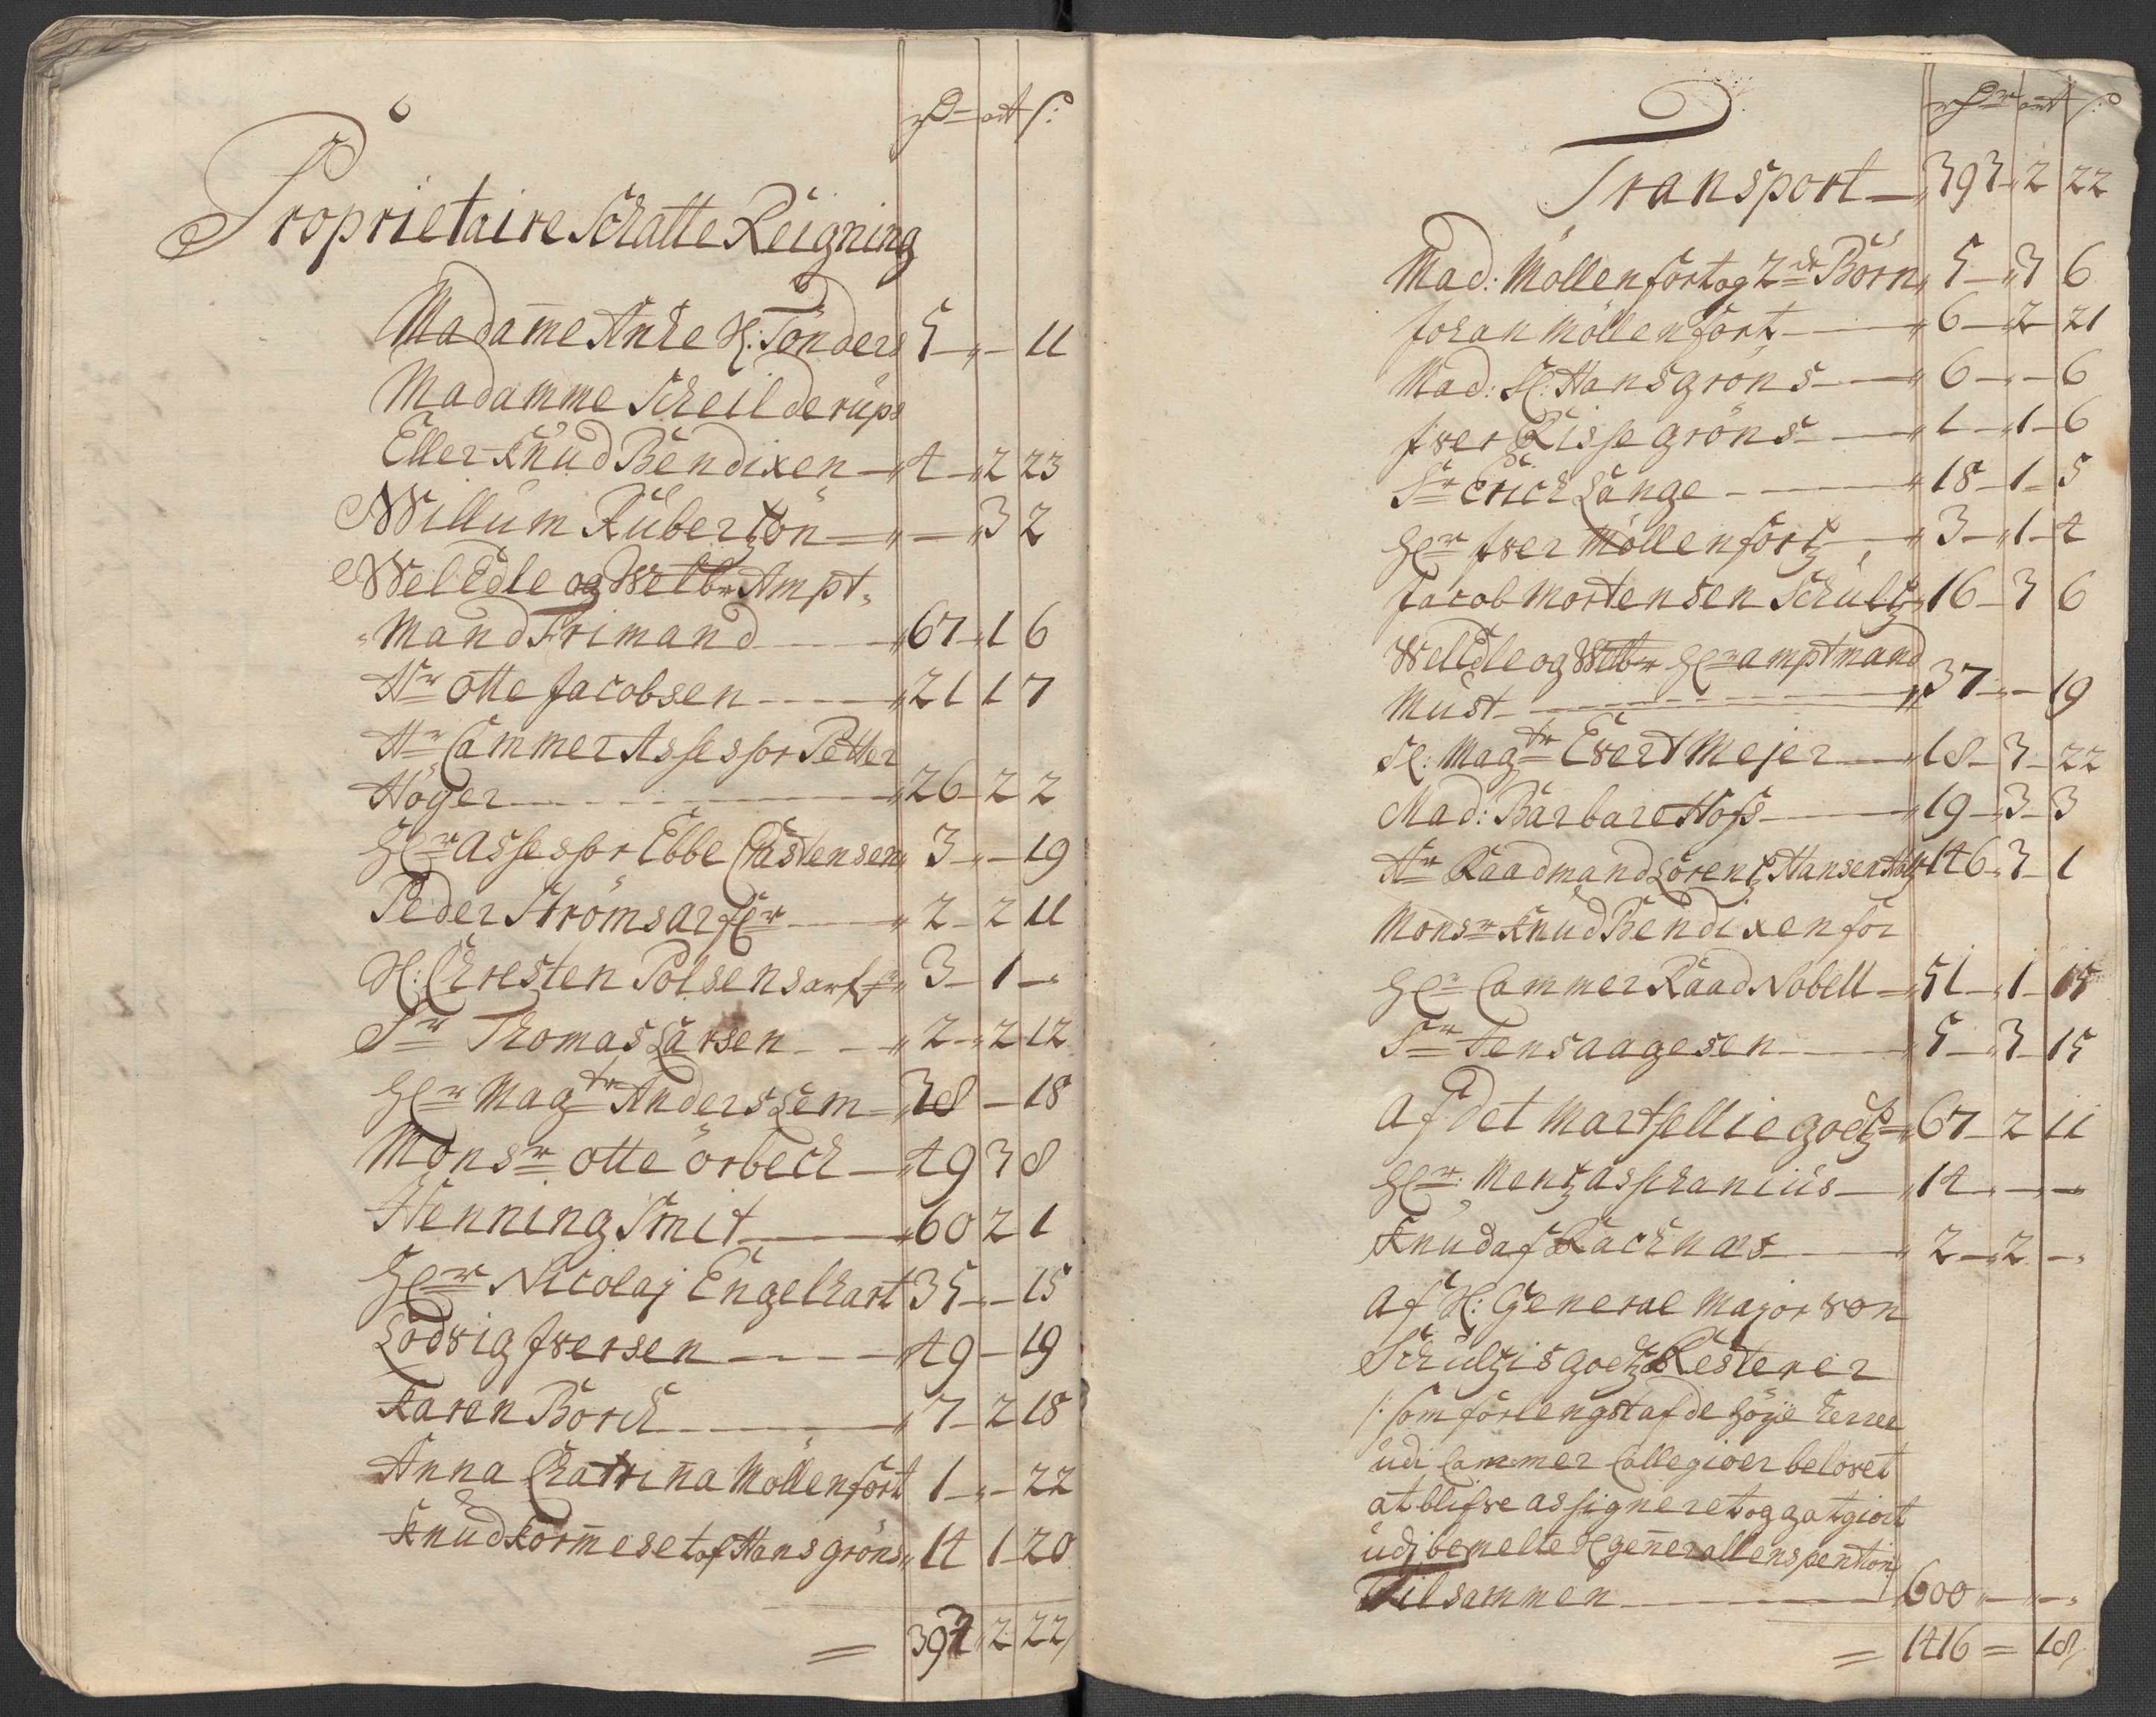 rdr ort s:
Proprietaire Schatte Reigning
Madame Anke H: Tönders 5 – „ – 11
Madamme Scheilderups
Eller Knud Bendixen – 4 – 2 23
Willum Rüberton – „ – 3 2
Wel Edle og Welbr Ampt
Mand Frimand – 67 – 1 6
Hr Otte Jacobsen – 21 1 7
Hr Cammer Assessor Petter
Höyer – 26 – 2 2
Her Assessor Ebbe Castensen 3 „ – 19
Peder Ströms arfer – 2 – 2 11
H: Chresten Polsens arf – 3 – 1 –
Sr Thomas Larsen – 2 – 2 12
Her Magtr Anders Lem – 38 – 18
Monsr Otte Örbech – 49 3 8
Henning Smit – 60 2 1
Her Nicolaj Engelhart 35 – „ – 15
Lodvig Iversen – 49 – 19
Karen Borch – 7 – 2 18
Anna Chatrina Möllenfort 1 – „ – 22
Knud Kormeset af Hans gröns 14 1 – 20
= 393 „ 2 22
rdr ort s:
Transport – 393 – 2 22
Mad: Möllenfort og 2de Börn 5 – 3 6
Johan Möllenfort – 6 – 2 – 21
Mad: Sl: Hans gröns – 6 – „ – 6
Iver Risse gröns – 1 – 1 – 6
Sr Erich Lange – 18 – 1 – 5
Her Iver Möllenfort – 3 – 1 – 4
Jacob Mortensen Schultz 16 – 3 6
Wel Edle og Welbr Her amptmand
Must – 37 „ – 19
Sl: Magtr Evert Mejer – 18 – 3 – 22
Mad: Barbare Hofs – 19 – 3 – 3
Hr Raadmand Lorentz Hansen 146 – 3 – 1
Monsr Knud Bendixen for
Her Cammer Raad Nobell – 51 – 1 – 15
Sr Jens aagesen – 5 – 3 – 15
Af det Martsellie goetz – 67 – 2 11
Her Mentz Asschanius – 14 „ – „ –
Knud af Rachnæs – 2 – 2 –
Af H: General Major von
Schultzis goetz Resterer
/: som forlengst af de höye herrer
udi Cammer Collegio er belovet
at blifve assigneret og gatgiort
udi bemelte H generallens pention
Tilsammen – 600 „ – „ – „
= 1416 = 18